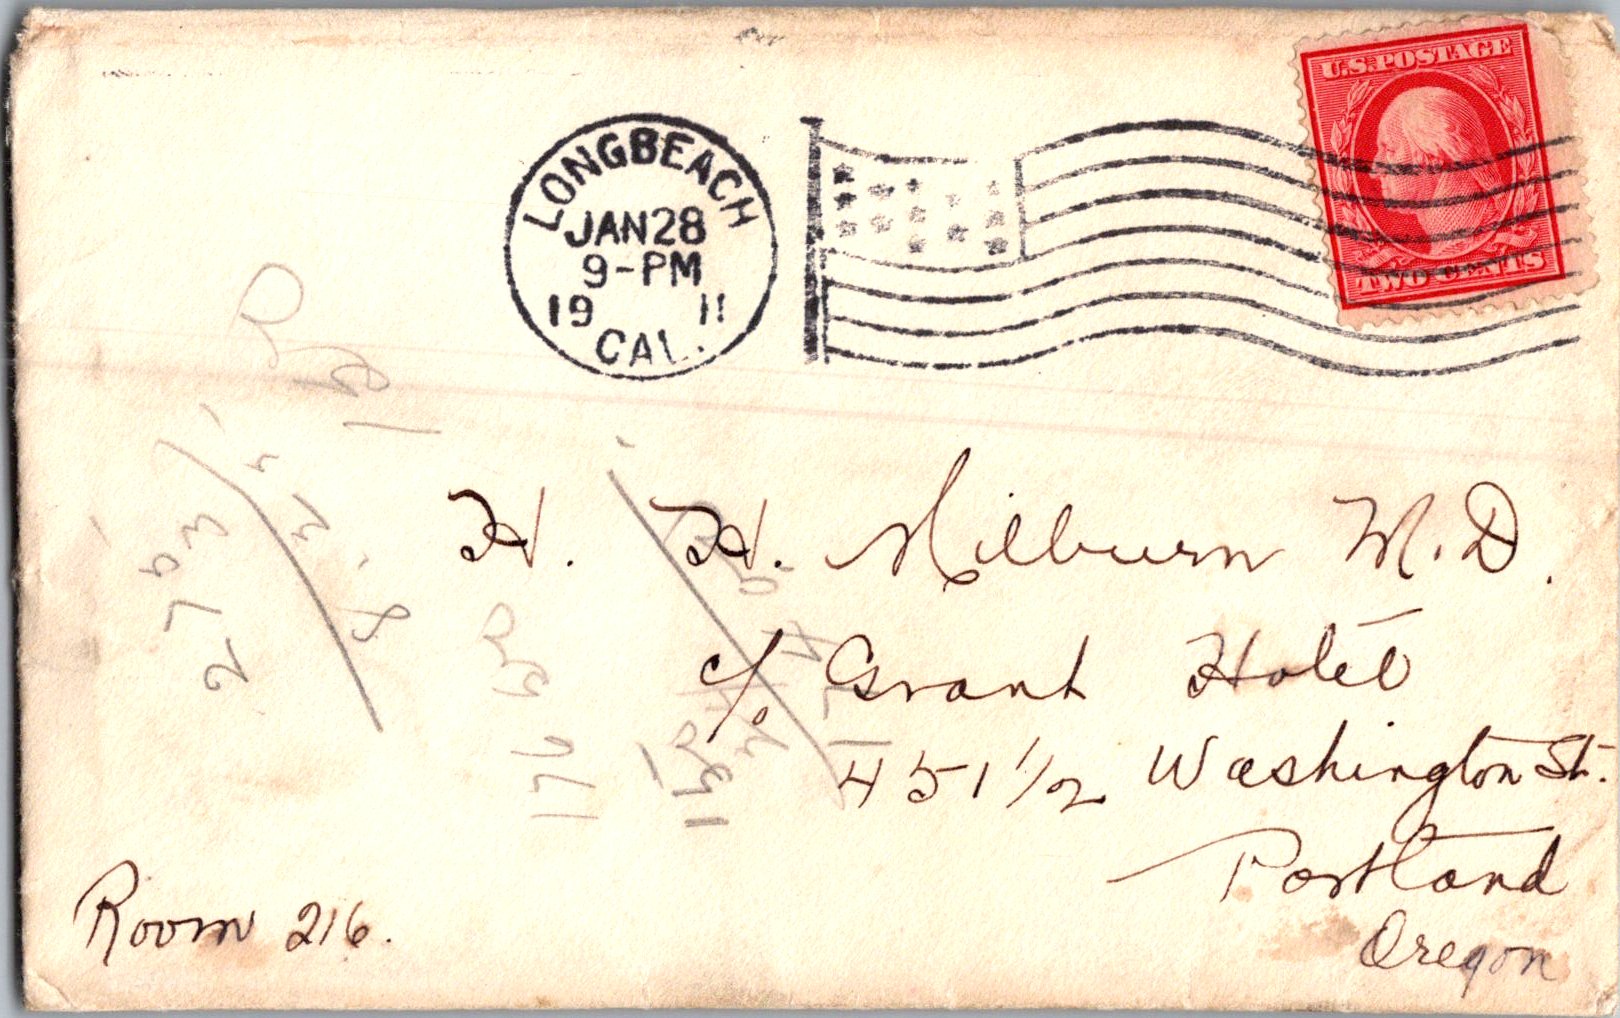 U.S. POSTAGE
TWO CENTS
LONG BEACH
JAN 28
9-PM
19 11
CAL.
H. H. Milburn M.D.
c/o Grant Hotel
451 1/2 Washington St.
Portland
Oregon
Room 216.